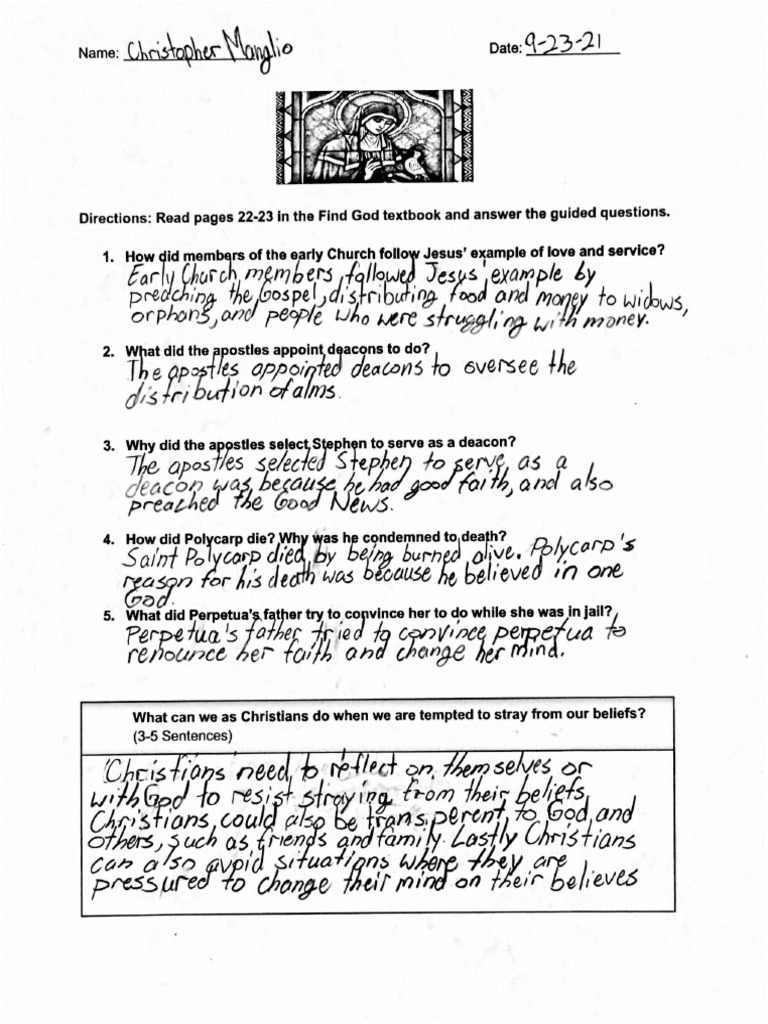 Name: Christopher Manglio Date: 9-23-21
Directions: Read pages 22-23 in the Find God textbook and answer the guided questions.
1. How did members of the early Church follow Jesus' example of love and service?
Early Church members followed Jesus' example by
preaching the Gospel, distributing food and money to widows,
orphans, and people who were struggling with money.
2. What did the apostles appoint deacons to do?
The apostles appointed deacons to oversee the
distribution of alms.
3. Why did the apostles select Stephen to serve as a deacon?
The apostles selected Stephen to serve as a
deacon was because he had good faith, and also
preached the Good News.
4. How did Polycarp die? Why was he condemned to death?
Saint Polycarp died by being burned alive. Polycarp's
reason for his death was because he believed in one
God.
5. What did Perpetua's father try to convince her to do while she was in jail?
Perpetua's father tried to convince perpetua to
renounce her faith and change her mind.
What can we as Christians do when we are tempted to stray from our beliefs?
(3-5 Sentences)
Christians need to reflect on themselves or
with God to resist straying from their beliefs.
Christians could also be transperent to God and
others, such as friends and family. Lastly Christians
can also avoid situations where they are
pressured to change their mind on their believes